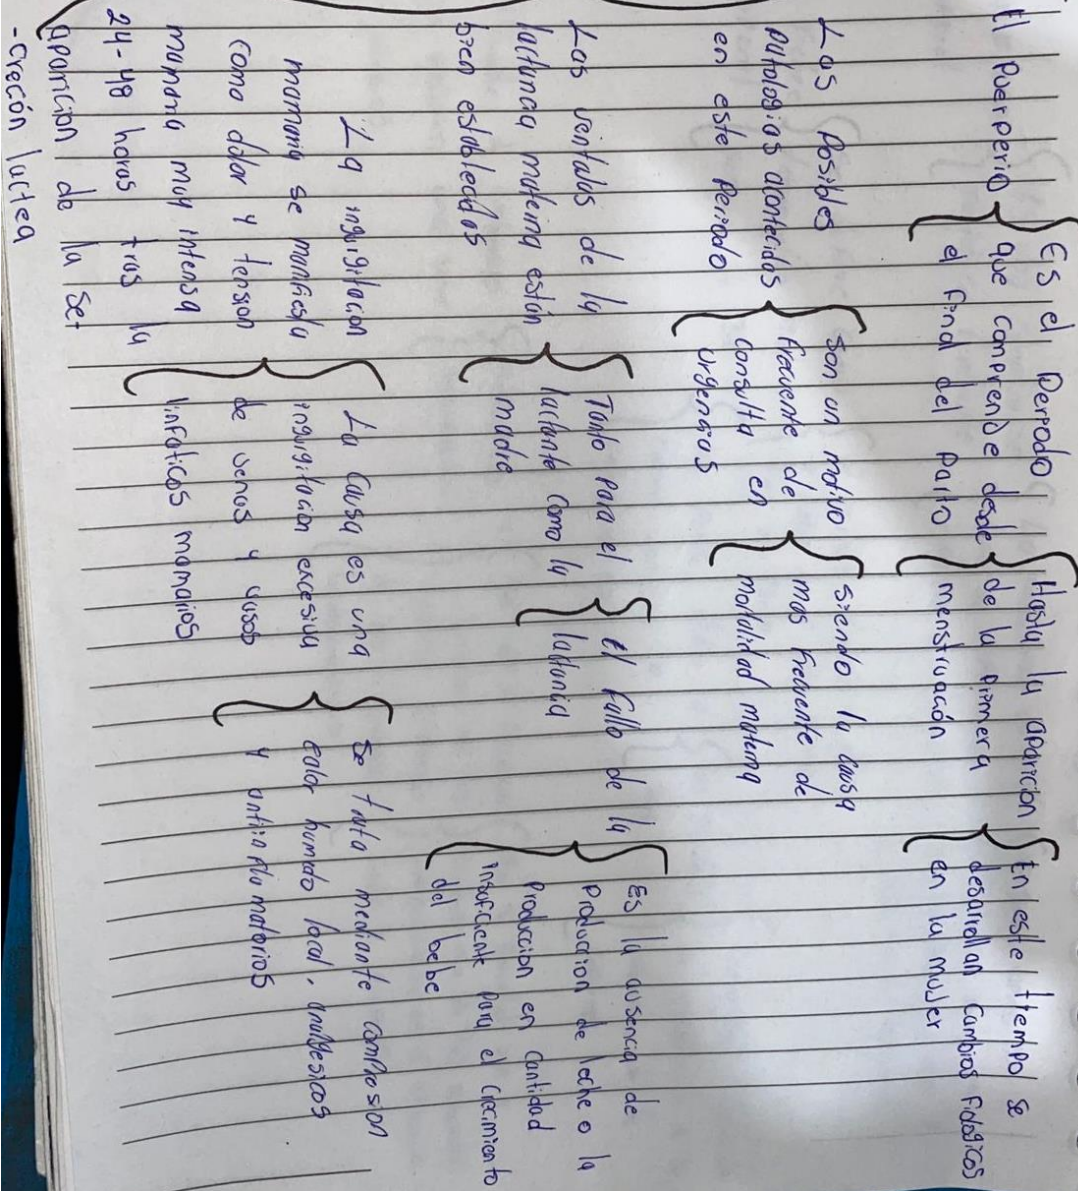 El Puerperio
Es el Perrodo
que comprende desde
el final del Parto
Hasta la aparicion
de la primera
menstruación
En este tiempo se
desarrollan Cambios Fidogicos
en la mujer
Las Posibles
Patologias acontecidas
en este Periodo
Son un motivo
frecuente de
Consulta en
urgencias
Siendo la causa
mas frecuente de
mortalidad materna
Las ventajas de la
lactancia materna están
bien establecidas
Tanto para el
lactante como la
madre
el fallo de la
lactancia
Es la ausencia de
Produccion de leche o la
Produccion en Cantidad
insuficiente para el crecimiento
del bebe
La ingurgitacion
mamaria se manifiesta
como dolor y tension
mamaria muy intensa
24-48 horas tras la
aparicion de la se-
-creción lactea
La Causa es una
ingurgitacion excesiva
de venas y vasos
linfaticos mamarios
Se trata mediante compresion
calor humedo local, analgesicos
y antiinflamatorios